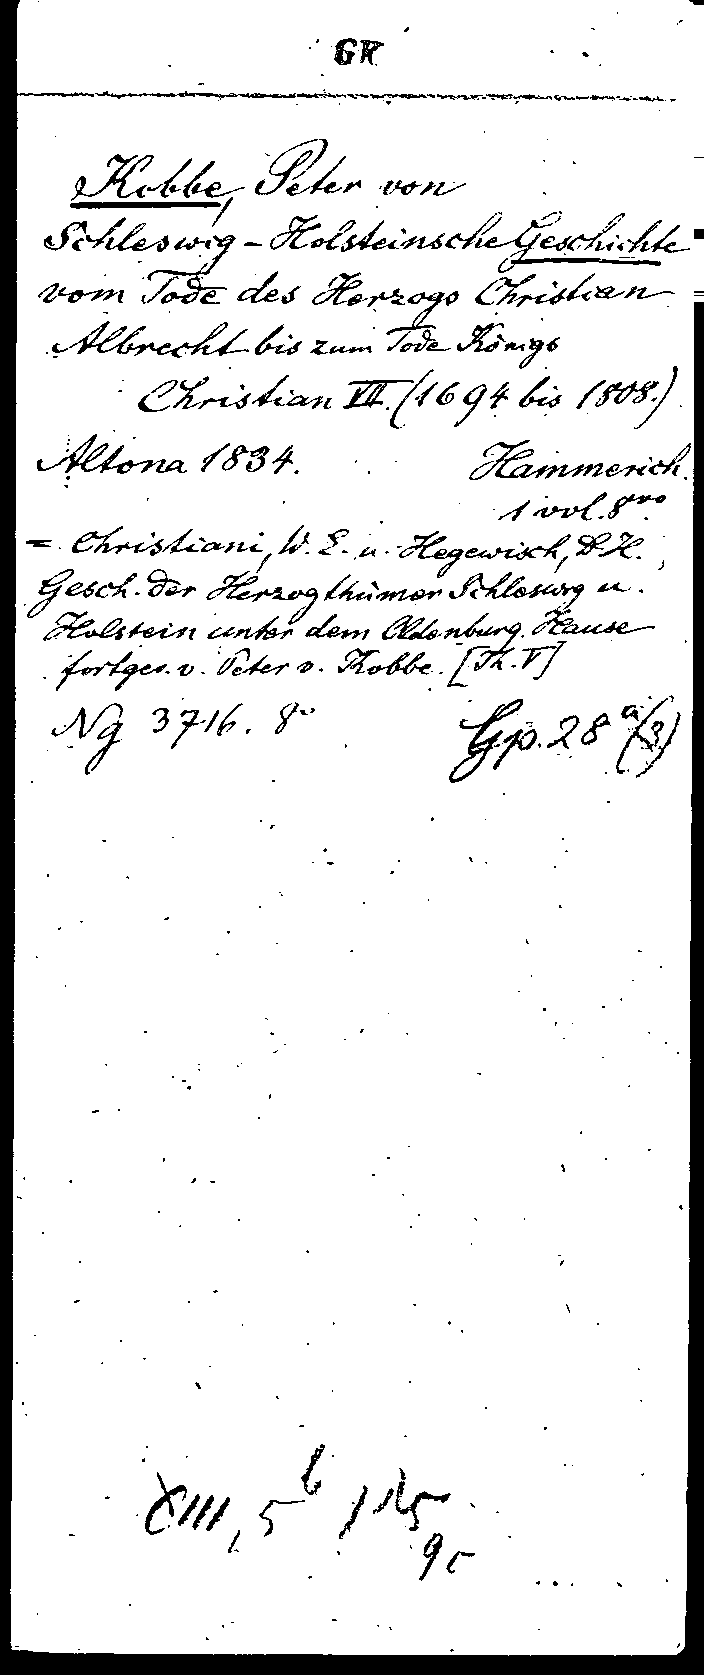 GK
Kobbe, Peter von
Schleswig-Holsteinsche Geschichte
vom Tode des Herzogs Christian
Albrecht bis zum Tode Königs
Christian VII. (1694 bis 1808.)
Altona 1834. Hammerich.
1 vol. 8vo.
= Christiani, W. E. u. Hegewisch, D. H.
Gesch. der Herzogthümer Schleswig u.
Holstein unter dem Oldenburg. Hause
fortges. v. Peter v. Kobbe. [Th. V]
Ng 3716. 8o Gp. 28 a(3)
XIII, 5 b